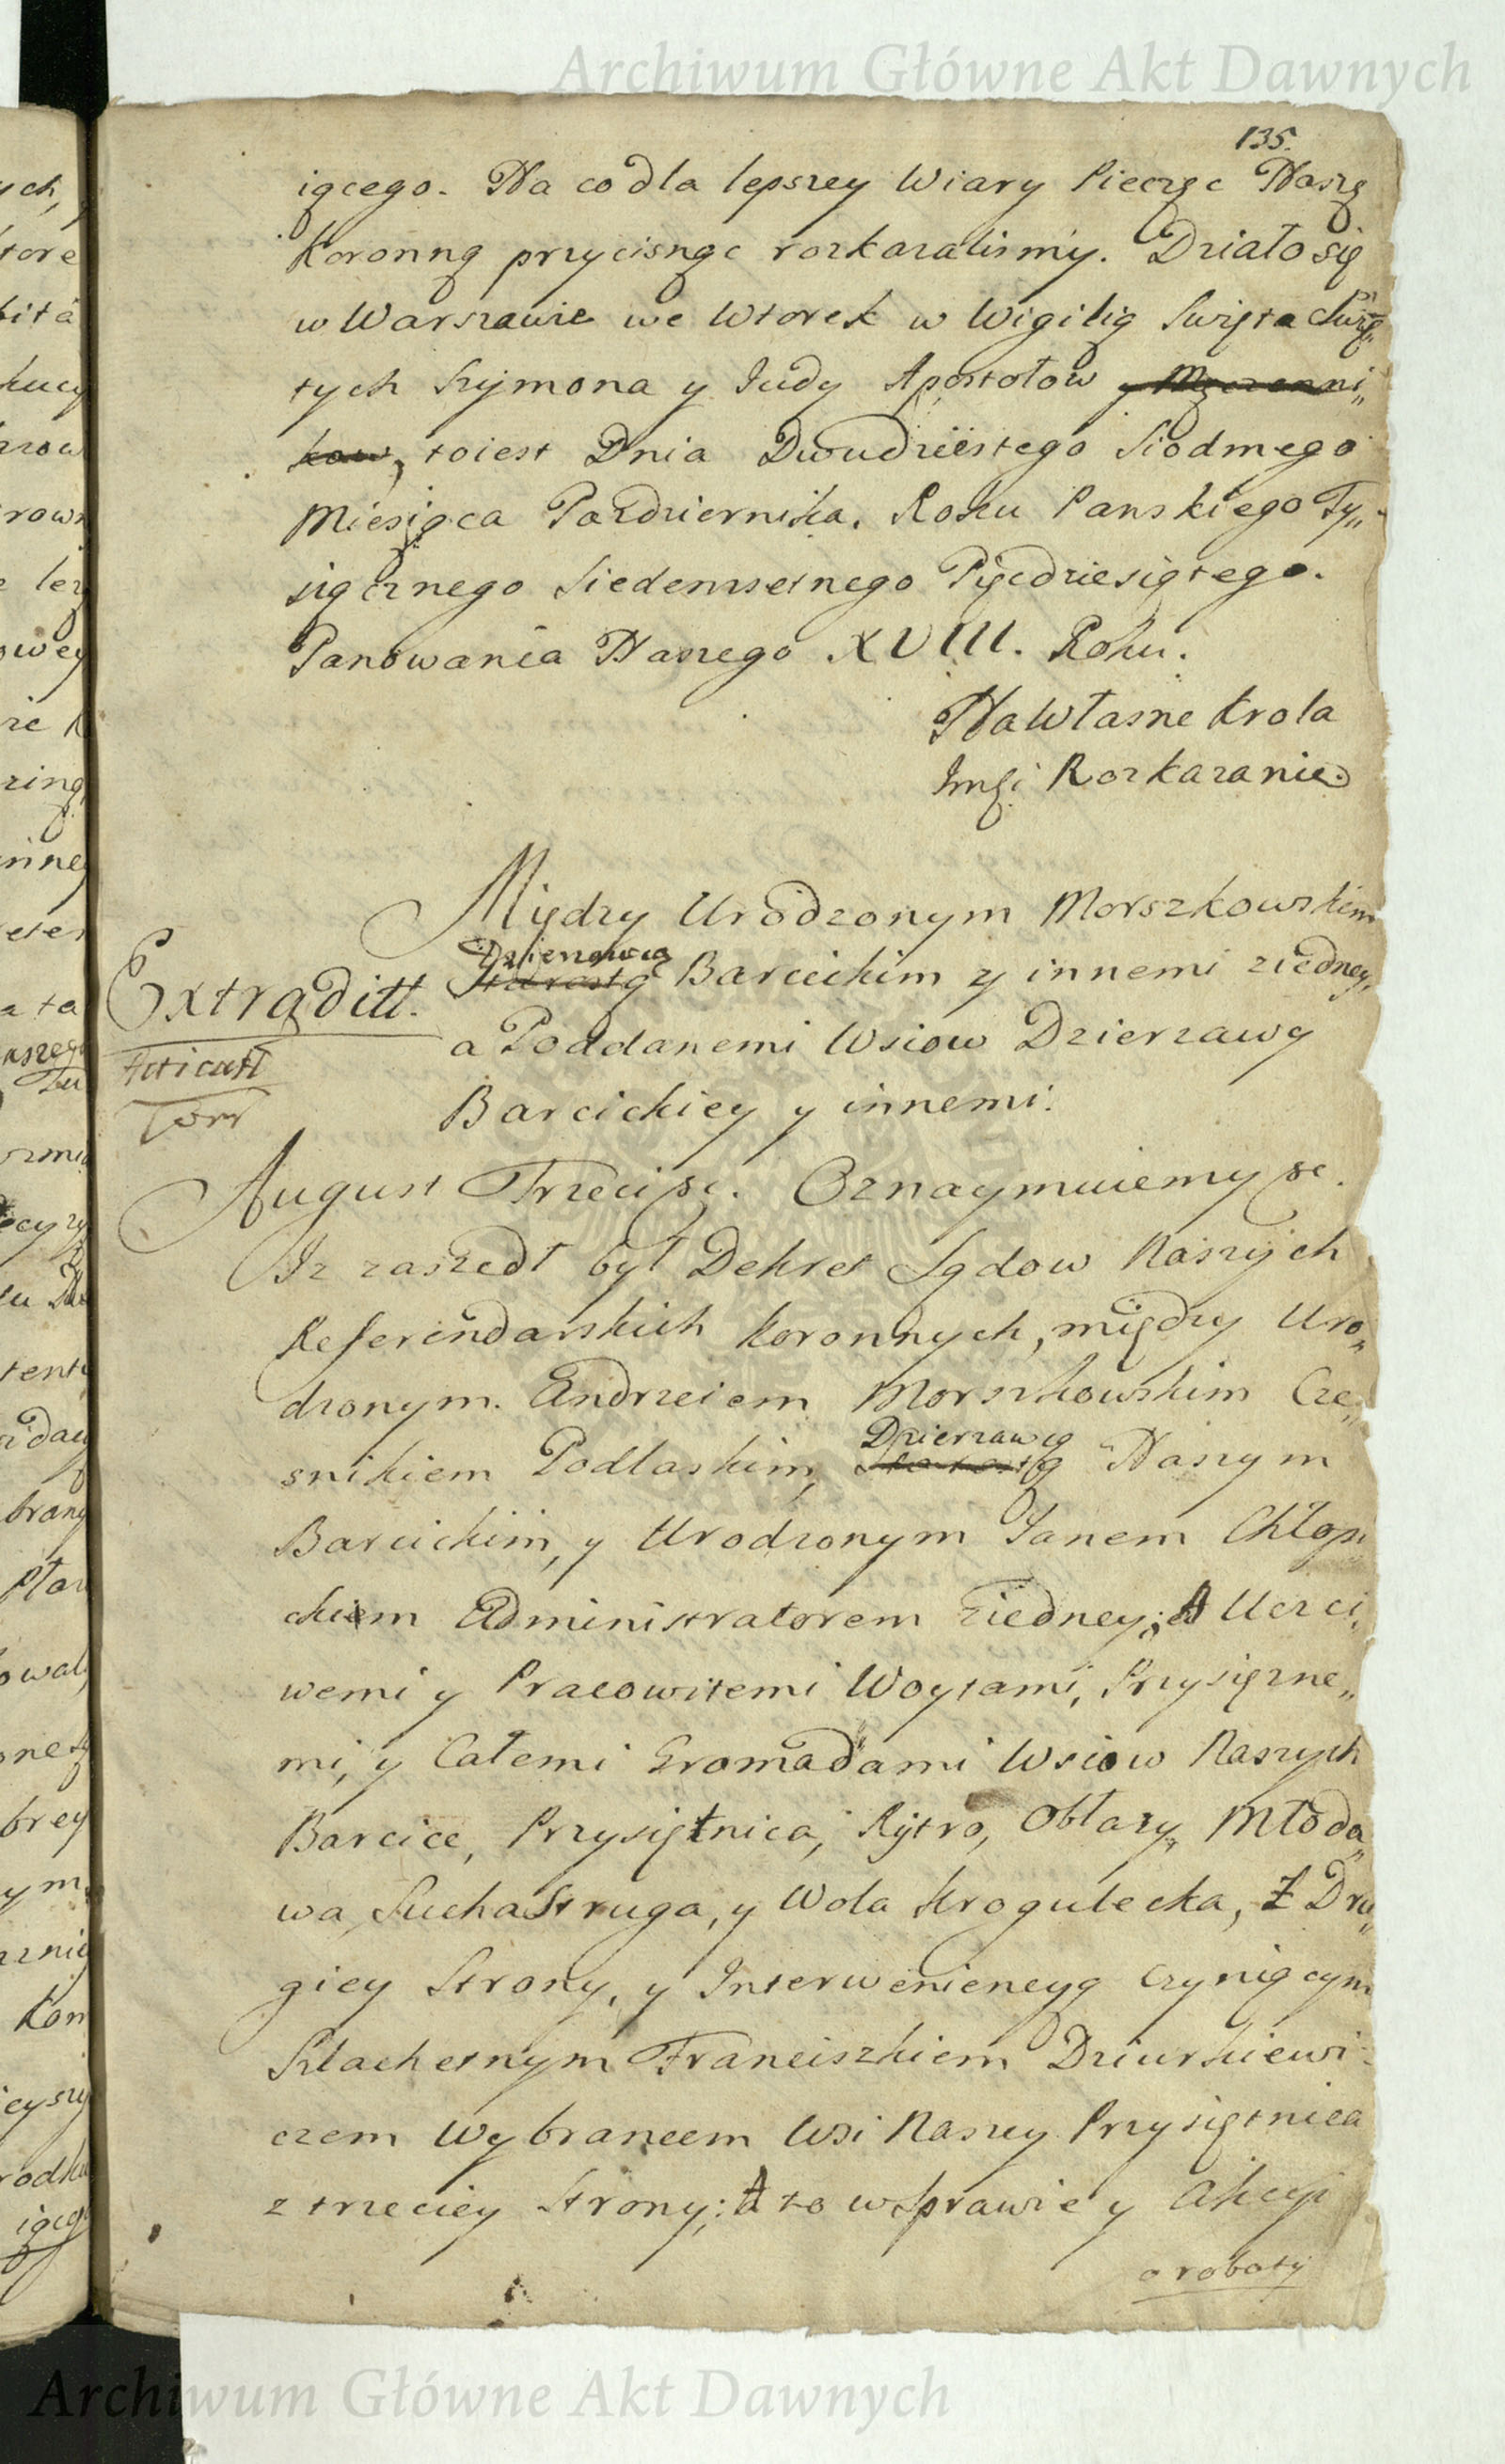 Archiwum Główne Akt Dawnych
135.
iącego. Na co dla lepszey Wiary Pieczęc Naszą
Koronną przycisnąc rozkazalismy. Działo się
w Warszawie we Wtorek w Wigilią Swięta Swię„
tych Szymona y Judy Apostołow y Męczenni„
kow, toiest Dnia Dwudziestego Siodmego
Miesiąca Pazdziernika. Roku Panskiego Ty„
siącznego Siedemsetnego Pięcdziesiątego.
Panowania Naszego XVIII. Roku.
Na Własne Krola
Jmści Rozkazanie
Między Urodzonym Morszkowskim
Dzierzawcą
Starostą Barcickim z innemi ziedney,
Extraditt.
a Poddanemi Wsiow Dzierzawy
Barcickiey y innemi.
August Trzeci &c. Oznaymuiemy &c.
Iz zaszedł był Dekret Sądow Naszych
Referendarskich Koronnych, między Uro„
dzonym Andrzeiem Morszkowskim Cze„
Dzierzawcą
snikiem Podlaskim, Starostą Naszym
Barcickim, y Urodzonym Janem Chłopi
ckiem Administratorem ziedney; A Uczci„
wemi y Pracowitemi Woytami, Przysięzne„
mi, y Całemi Gromadami Wsiow Naszych
Barcice, Przysiętnica, Rytro, Obłazy, Młodo„
wa, Sucha Struga, y Wola Krogulecka, Z Dru„
giey Strony, y Interweniencyą czyniącym
Szlachetnym Franciszkiem Dziurkiewi„
czem Wybrancem Wsi Naszey Przysiętnica
z trzeciey Strony; A to w Sprawie y Akcyi
o roboty
Archiwum Główne Akt Dawnych